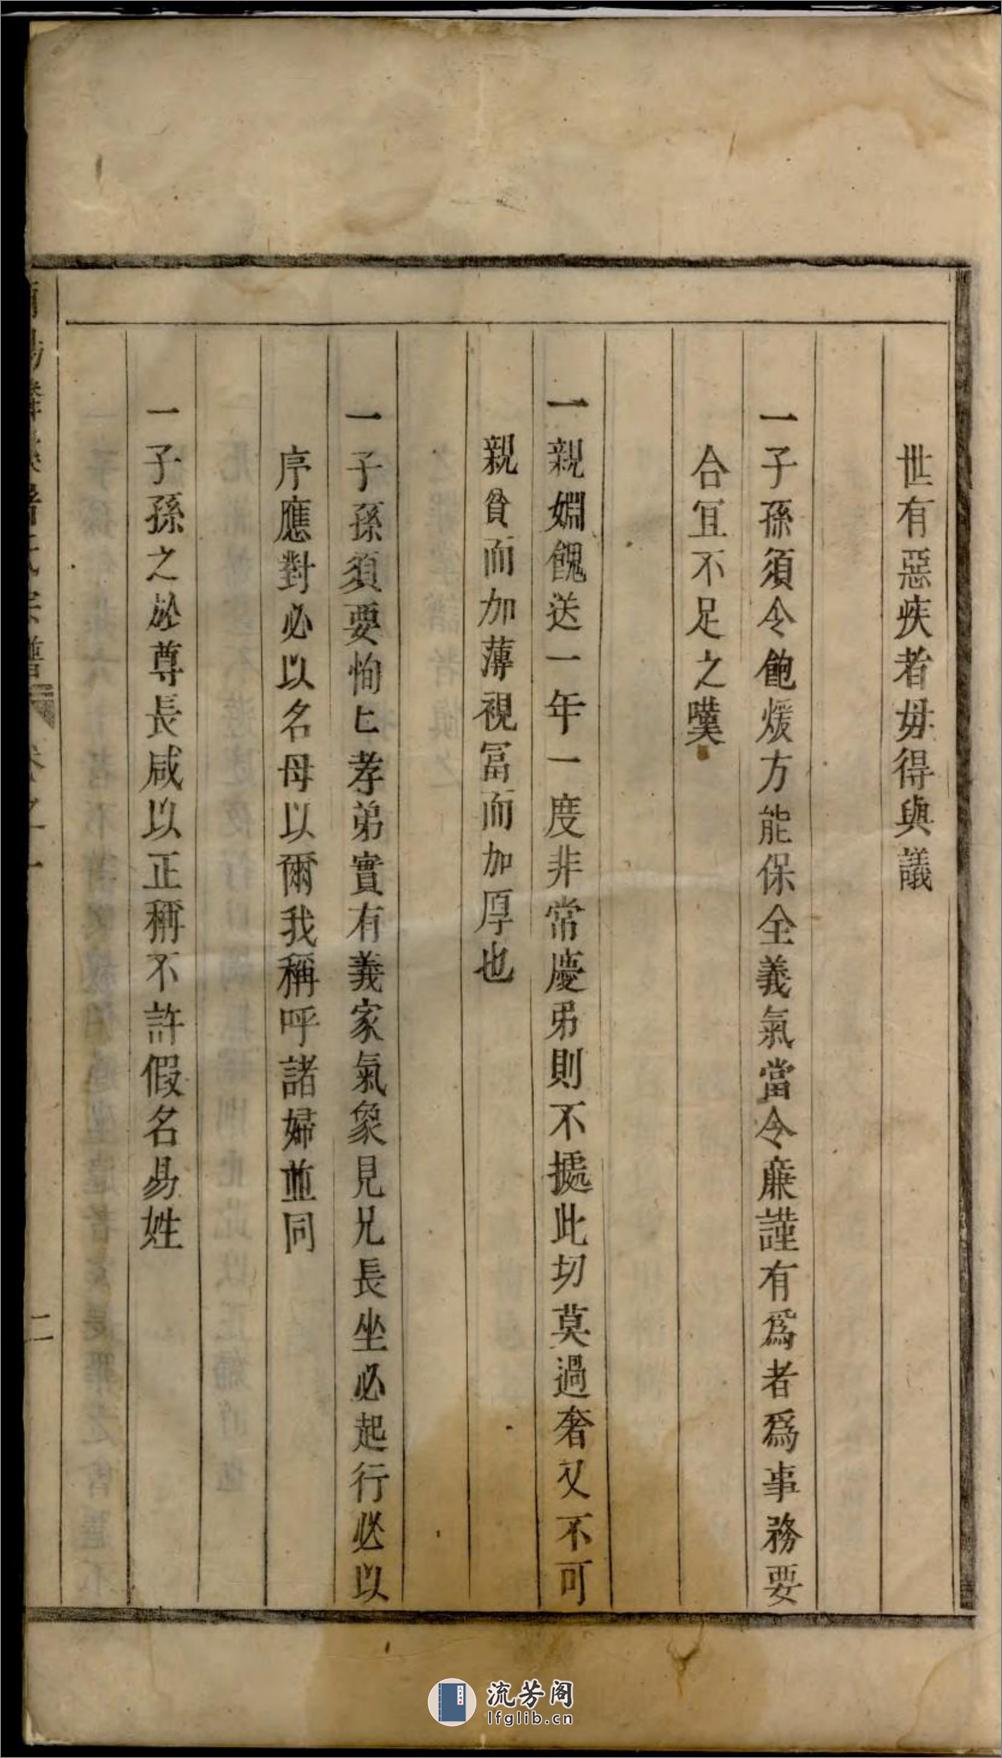 世有惡疾者毋得與議
一子孫須令飽煖方能保全義氣當令廉謹有爲者爲事務要
合冝不足之嘆
一親婣餽送一年一度非常慶弔則不㨿此切莫過奢又不可
親貧而加薄視冨而加厚也
一子孫須要恂匕孝弟實有義家氣象見兄長坐必起行必以
序應對必以名母以爾我稱呼諸婦並同
一子孫之於尊長咸以正稱不許假名易姓
氏宗譜
卷之一
二
流芳阁
lfglib.cn